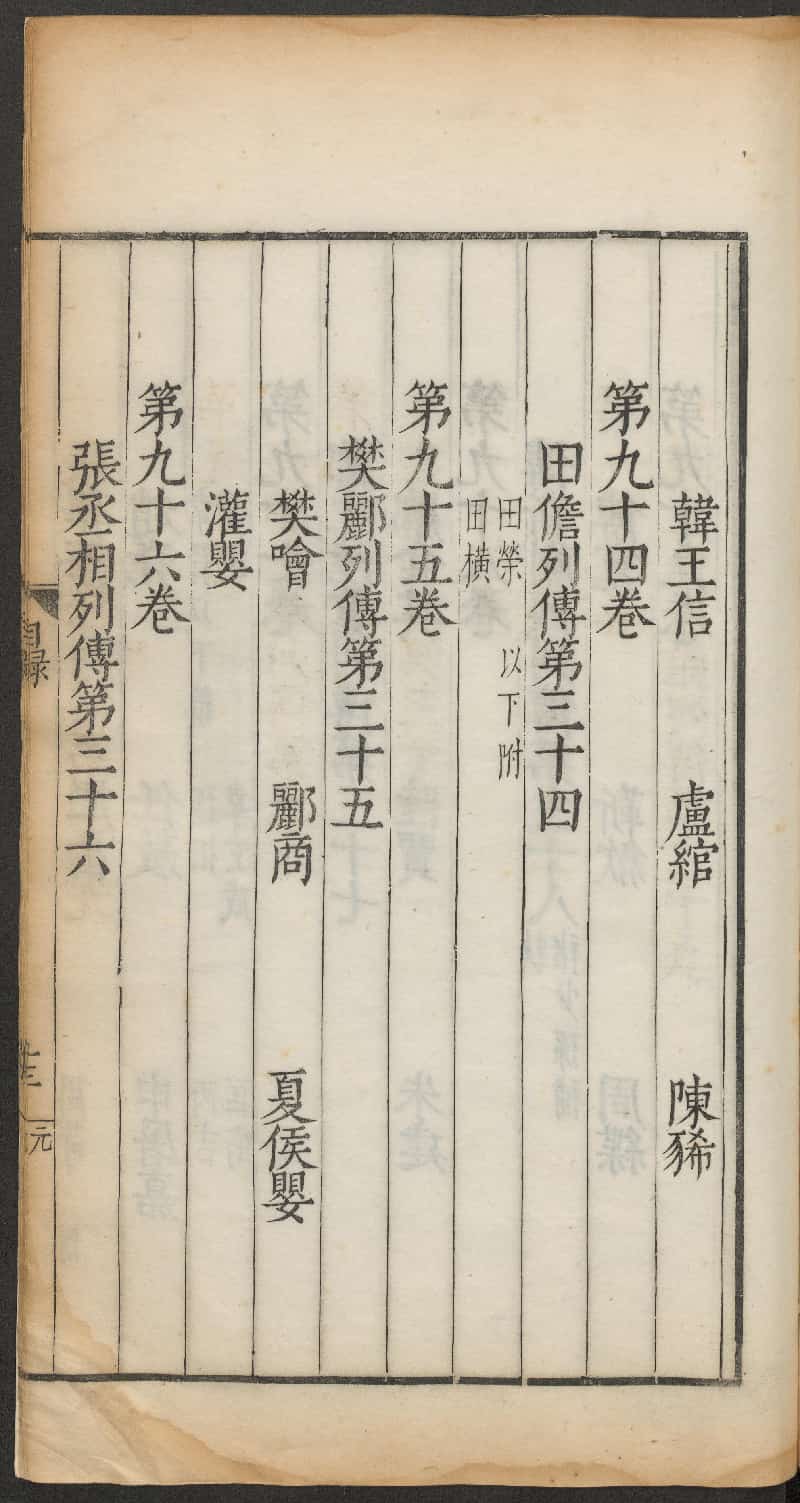 韓王信 盧綰 陳豨
第九十四卷
田儋列傳第三十四
田榮 以下附
田橫
第九十五卷
樊酈列傳第三十五
樊噲 酈商 夏侯嬰
灌嬰
第九十六卷
張丞相列傳第三十六
目錄
元